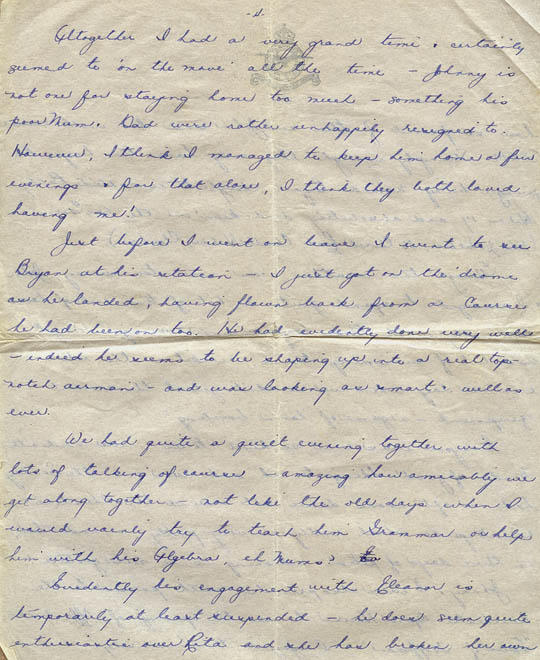 -4-
Altogether I had a very grand time & certainly
seemed to 'on the move' all the time - Johnny is
not one for staying home too much - something his
poor Mum & Dad were rather unhappily resigned to.
However, I think I managed to keep him home a few
evenings & for that alone, I think they both loved
having me!
Just before I went on leave I went to see
Bryan at his station - I just got on the 'drome
as he landed, having flown back from a Course
he had been on too. He had evidently done very well
- indeed he seems to be shaping up into a real top-
notch airman - and was looking as smart & well as
ever.
We had quite a quiet evening together with
lots of talking of course - amazing how amicably we
get along together - not like the old days when I
would vainly try to teach him Grammar or help
him with his Algebra eh Mums?
Evidently his engagement with Eleanor is
temporarily at least suspended - he does seem quite
enthusiastic over Rita and she has broken her own